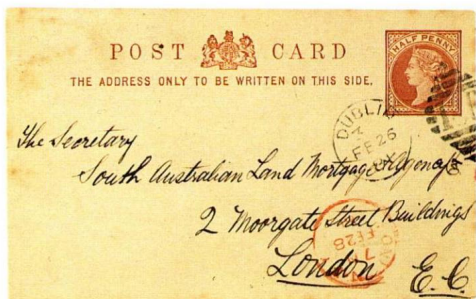 POST CARD
HALF PENNY
THE ADDRESS ONLY TO BE WRITTEN ON THIS SIDE.
DUBLIN
A
FE 26
The Secretary
South Australian Land Mortgage & Agency
2 Moorgate Street Buildings
FE 28
London E.C.